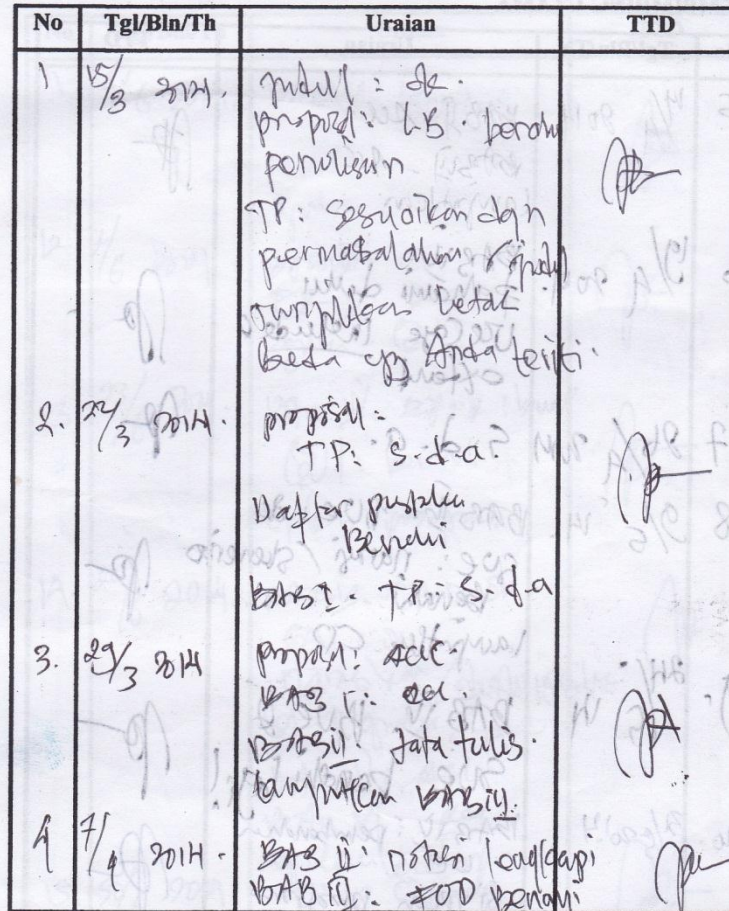 No Tgl/Bln/Th Uraian TTD
1 15/3 2014. judul : ok.
proposal : LB. benahi
penulisan
TP : Sesuaikan dgn
permasalahan / judul
letak
beda yg Anda teliti.
2. 22/3 2014. proposal :
TP : s.d.a.
Daftar pustaka
Benahi
BAB I. TP : s.d.a
3. 29/3 2014 proposal : acc.
BAB I : acc.
BAB II : tata tulis.
lanjutkan BAB III
4 7/4 2014. BAB II : lengkapi
BAB III. benahi